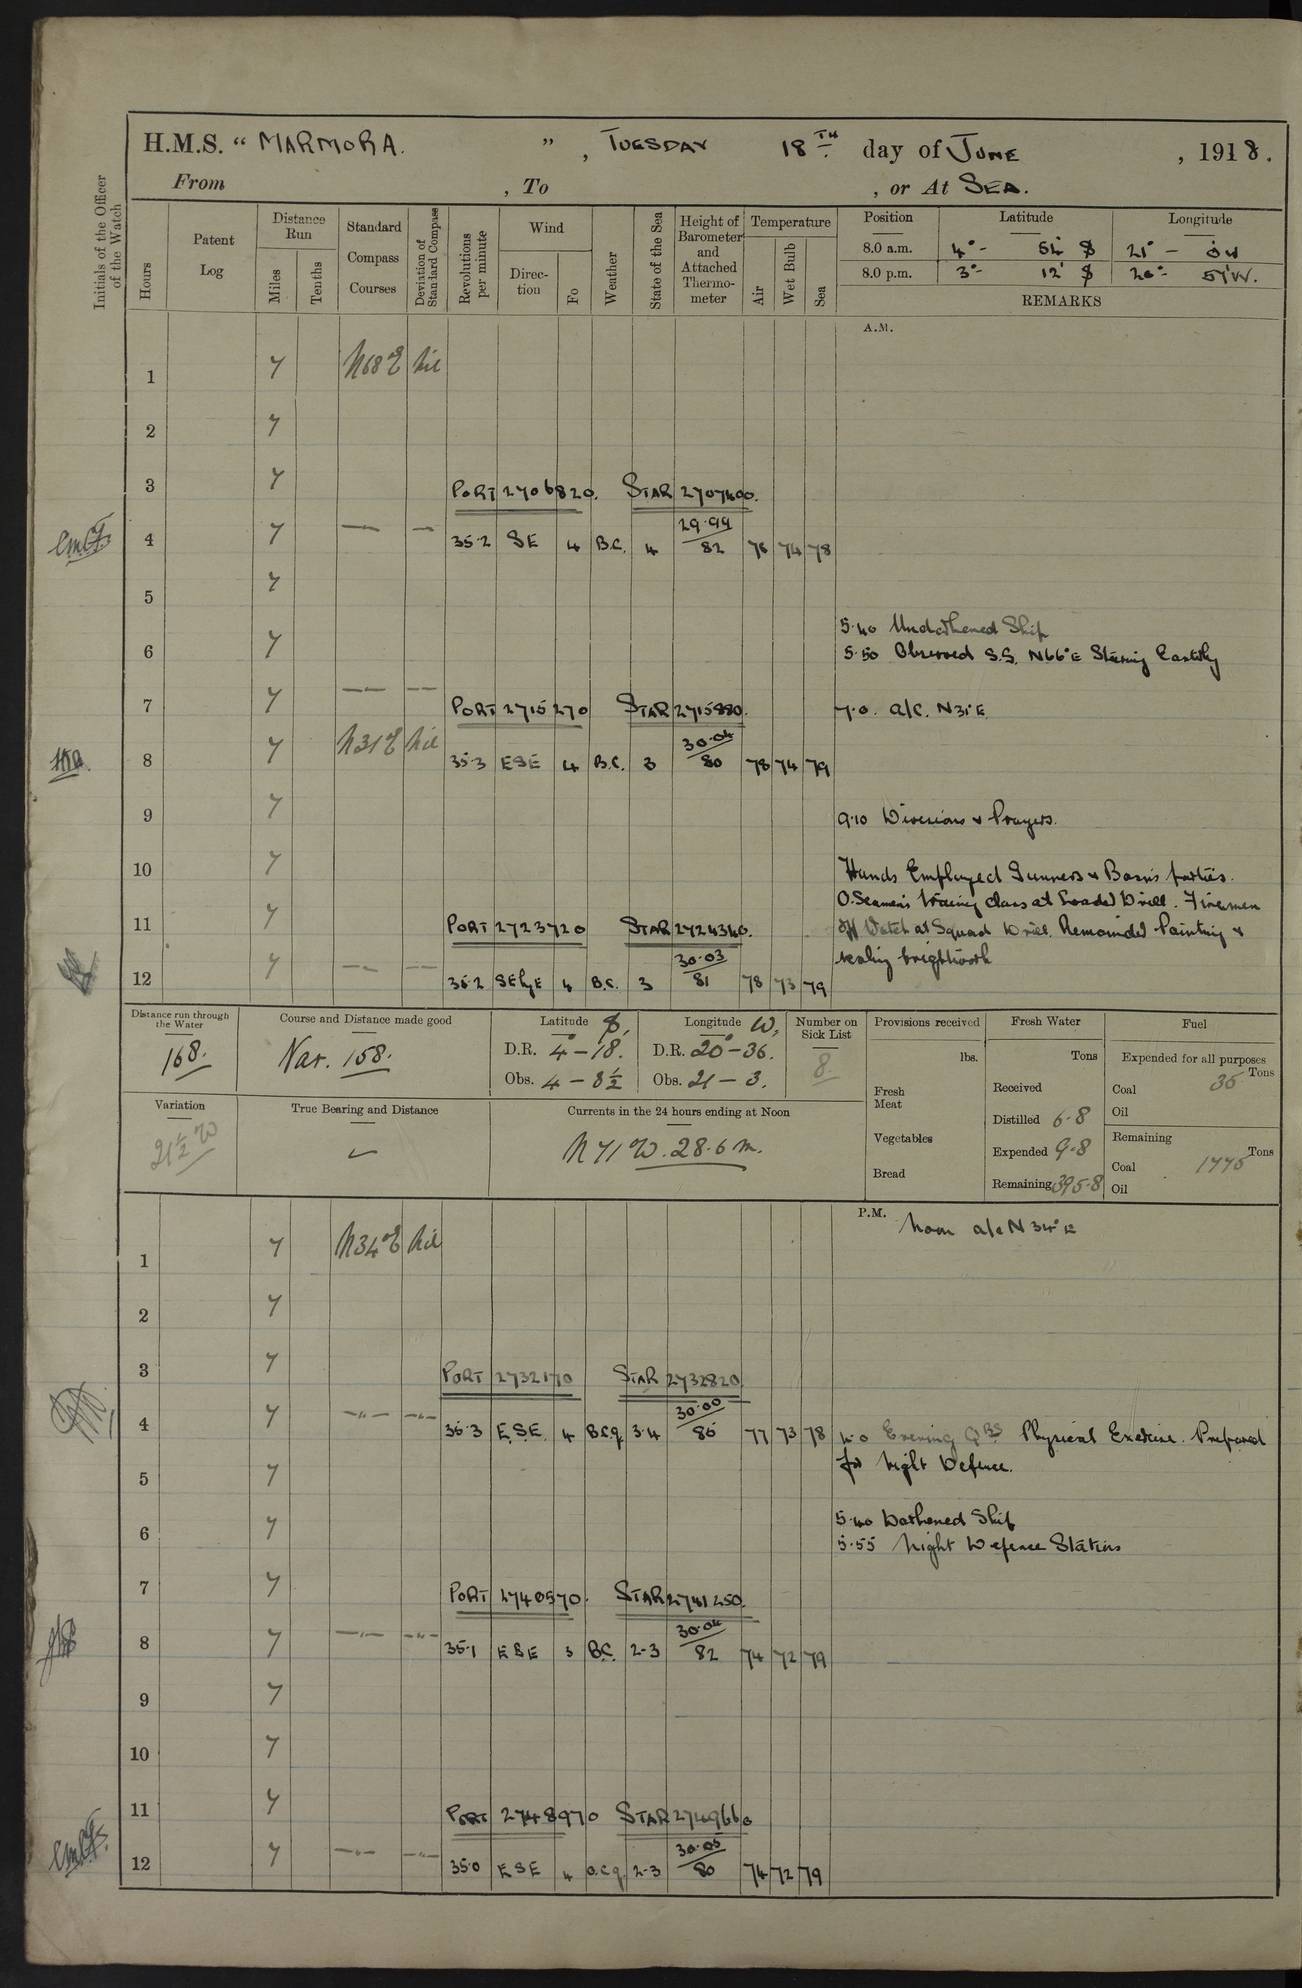 H.M.S. “ MARMORA. ” , TUESDAY 18TH day of JUNE , 1918.
From , To , or At SEA.
Initials of the Officer of the Watch
Hours
Patent Log
Distance Run
Miles
Tenths
Standard Compass Courses
Deviation of Standard Compass
Revolutions per minute
Wind
Direc-tion
Fo
Weather
State of the Sea
Height of Barometer and Attached Thermo-meter
Temperature
Air
Wet Bulb
Sea
Position Latitude Longitude
8.0 a.m. 4° - 54' S 21° -
8.0 p.m. 3° - 12' S 20° - 57'W.
REMARKS
A.M.
1 7 N68°E Nil
2 7
3 7
PORT 2706820. STAR 2707400.
4 7 35.2 SE 4 B.C. 4 29.99/82 78 74 78
5 7
5.40 Undarkened Ship
6 7 5.50 Observed S.S. N66°E Steering Easterly
7 7 7.0. a/c. N31°E
PORT 2715270 STAR 2715880.
8 7 N31°E Nil 35.3 ESE 4 B.C. 3 30.04/80 78 74 79
9 7 9.10 Divisions & Prayers.
10 7 Hands Employed Gunners & Bosn's parties.
O.Seamen's training class at Loader Drill. Firemen
11 7 off Watch at Squad Drill. Remainder Painting &
PORT 2723720 STAR 2724340.
scaling brightwork
12 7 35.2 SEbyE 4 B.C. 3 30.03/81 78 73 79
Distance run through the Water
168.
Course and Distance made good
Nar. 158.
Latitude S.
D.R. 4° - 18.
Obs. 4 - 8½
Longitude W.
D.R. 20° - 36.
Obs. 21 - 3.
Number on Sick List
8.
Provisions received
lbs.
Fresh Meat
Vegetables
Bread
Fresh Water
Tons
Received
Distilled 6.8
Expended 9.8
Remaining 395.8
Fuel
Expended for all purposes
Tons
Coal 35
Oil
Remaining
Tons
Coal 1775
Oil
Variation
21½ W
True Bearing and Distance
Currents in the 24 hours ending at Noon
N 71 W. 28.6 m.
P.M. Noon a/c N 34° E
1 7 N34°E Nil
2 7
3 7
PORT 2732170 STAR 2732820
4 7 35.3 E.S.E. 4 B.C.q. 3.4 30.00/85 77 73 78 4.0 Evening Qrs Physical Exercise. Prepared
for Night Defence.
5 7
5.40 Darkened Ship
6 7 5.55 Night Defence Stations
7 7
PORT 2740570. STAR 2741250.
8 7 35.1 ESE 3 B.C. 2-3 30.04/82 74 72 79
9 7
10 7
11 7
PORT 2748970 STAR 2749660
12 7 35.0 ESE 4 O.C.q. 2-3 30.05/80 74 72 79